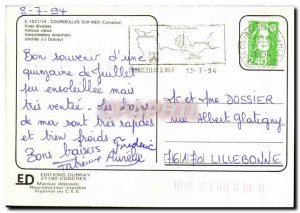 8-7-94
C 1071/14 - COURSEULLES SUR MER (Calvados)
Vues diverses
Various views
Verschiedene Ansichten
clichés J-J Dubray
Bon souvenir d'une
quinzaine de Juillet
peu ensoleillée mais
très ventée. Les bains
de mer sont très rapides
et bien froids
Bons baisers Frédéric
Fabienne Aurélie
COURSEULLES S/MER 13-7-94
2,40
Mr et Mme DOSSIER
rue Albert Glatigny
76170 LILLEBONNE
ED
EDITIONS DUBRAY
27190 CONCHES
Marque déposée
Reproduction interdite
Imprimé en C.E.E.